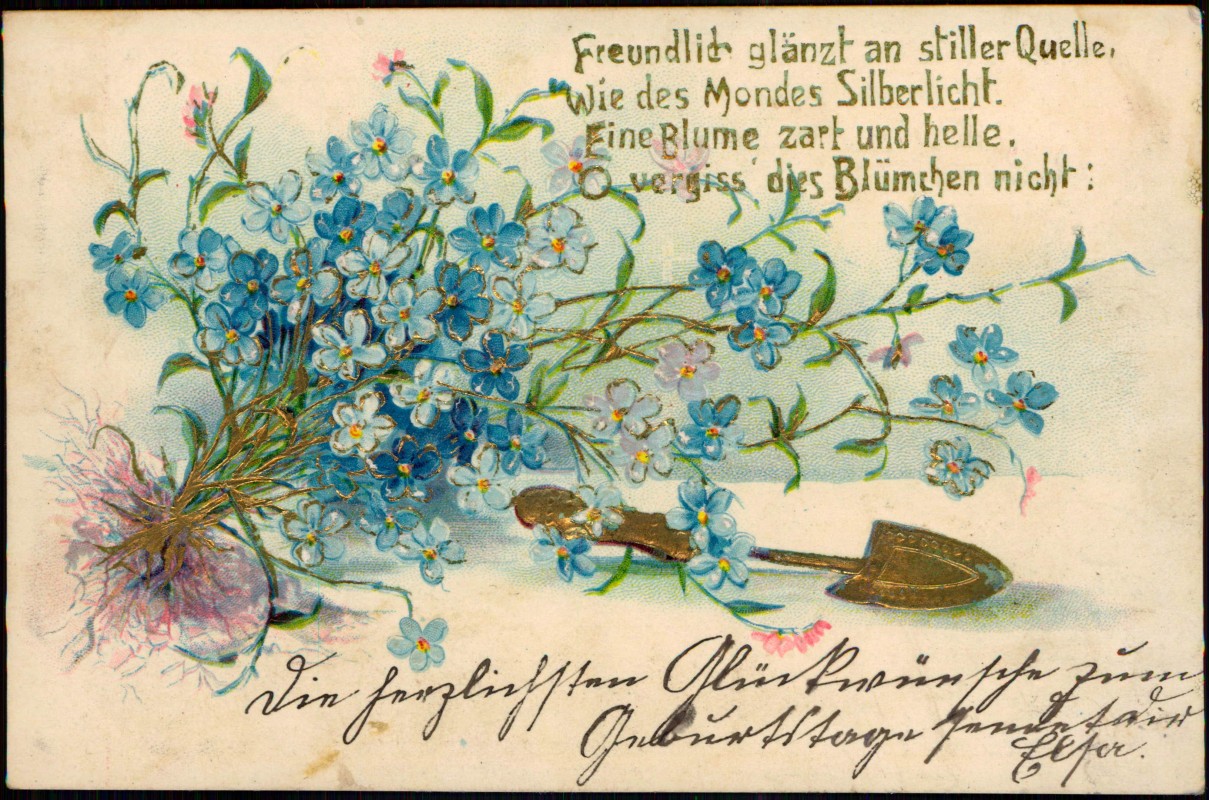 Freundlich glänzt an stiller Quelle,
Wie des Mondes Silberlicht.
Eine Blume zart und helle,
O vergiss dies Blümchen nicht!
Die herzlichsten Glückwünsche zum
Geburtstage sendet dir
Elsa.